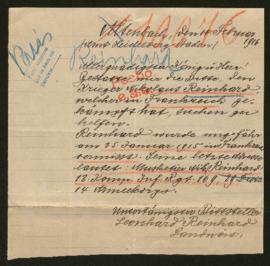 Altenbach, den 14 Februar
1916
Allergnädigster König u. Herr
Gestatte mir die Bitte, den
Krieger Nikolaus Reinhard
welcher in Frankreich ge-
kämpft hat suchen zu
helfen.
Reinhard wurde ungefähr
am 25 Januar 1915 in Frankreich
vermisst. Seine letzte Adresse
lautet: Musketier Nik. Reinhard
12 Komp. Inf. Rgt. 169
14 Armeekorps.
Untertänigster Bittsteller
Leonhard Reinhard
Landwirt.
Reinhard